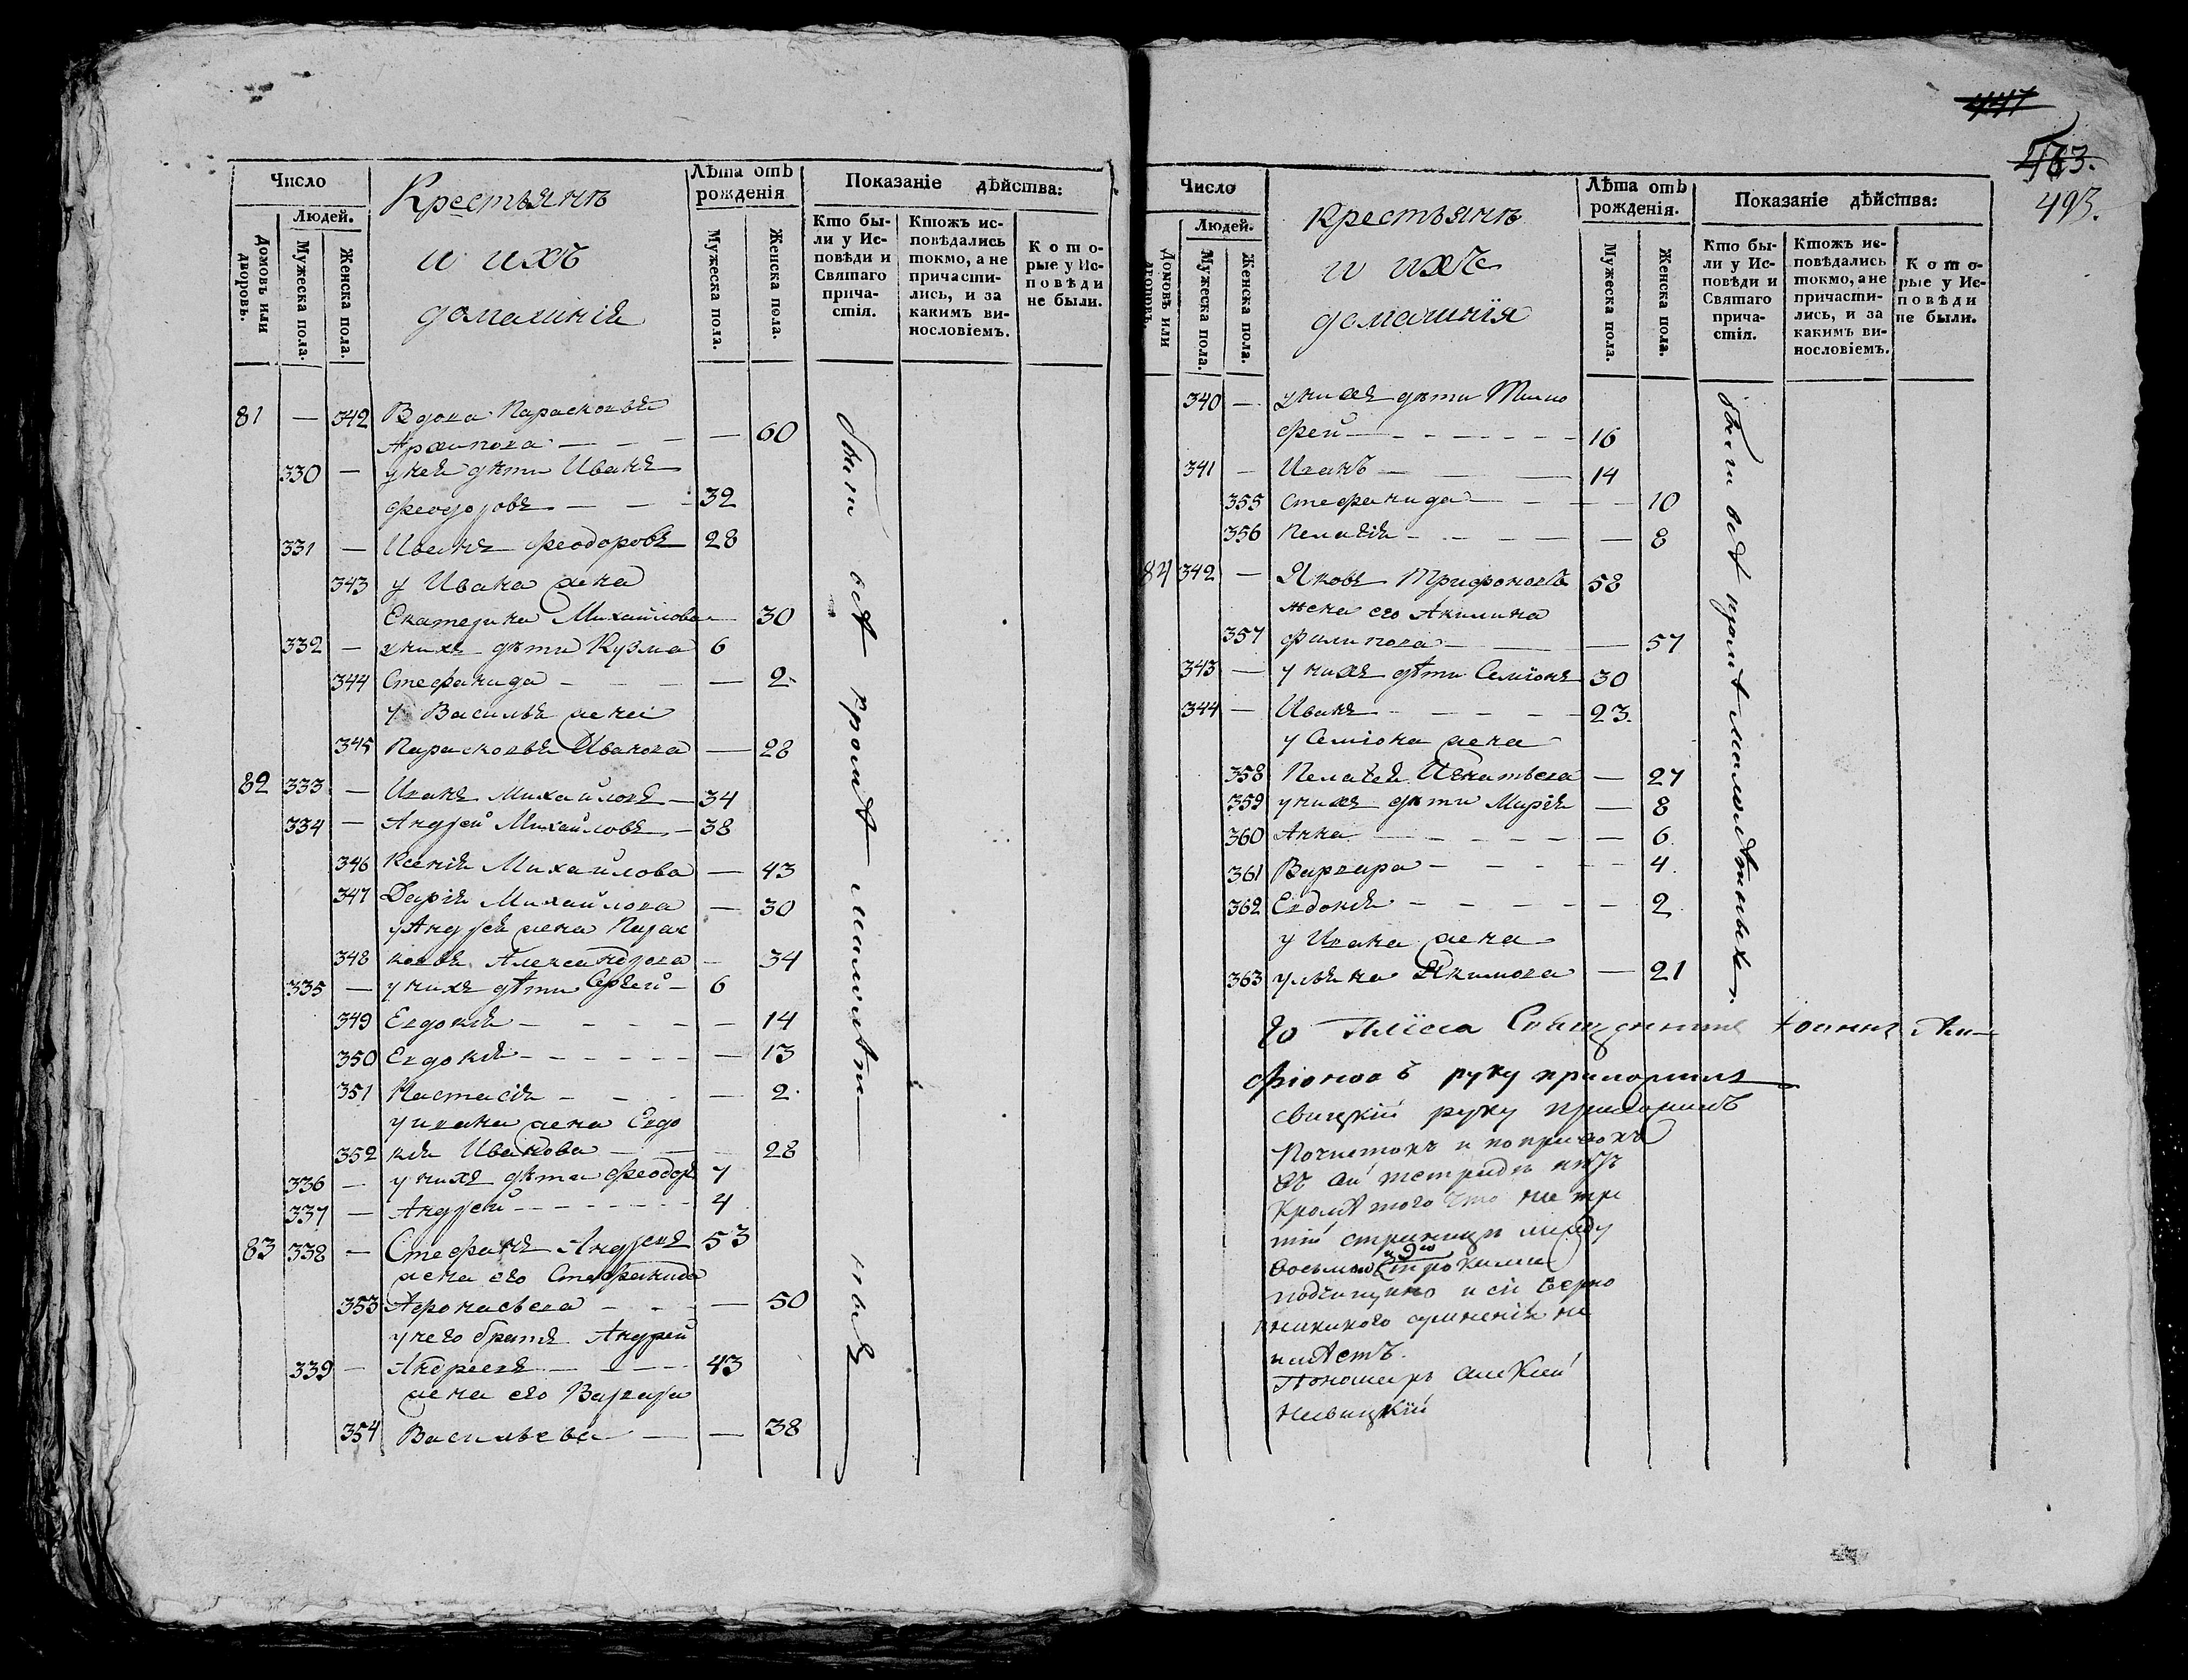 Число
Людей.
Домовъ или дворовъ.
Мужеска пола.
Женска пола.
Крестьянѣ
и ихъ
домашнія
Лѣта отъ рожденія
Мужеска пола.
Женска пола.
Показаніе дѣйства:
Кто были у Исповѣди и Святаго причастія.
Ктожъ исповѣдались токмо, а не причастились, и за какимъ винословіемъ.
Которые у Исповѣди не были.
81 — 342 Вдова Парасковья
Архипова — — — — 60
330 — у ней дѣти Иванъ
Феодоровъ — — — 32
331 — Феодоровъ 28
343 у Ивана жена
Екатерина Михайлова — 30
332 — у нихъ дѣти Кузма 6
344 Стефанида — — — — 2
у Василья жена
345 Парасковья Иванова — 28
82 333 — Иванъ Михайловъ — 34
334 — Андрей Михайловъ — 38
346 Ксенія Михайлова — 43
347 Дарія Михайлова — 30
у Андрея жена Парас
348 ковья Александрова — 34
335 — у нихъ дѣти Сергѣй — 6
349 Евдокія — — — — — 14
350 Евдокія — — — — — 13
351 Настасія — — — — 2
у Ивана жена Евдо
352 кія Иванова — — — 28
336 — у нихъ дѣти Феодоръ 7
337 — Андрей — — — — 4
83 338 — Стефанъ Андреевъ 53
жена его Стефанида
353 Афонасьева — — — — 50
у него братъ Андрей
339 — Андреевъ — — — 43
жена его Варвара
354 Васильева — — 38
были всѣ кромѣ малолѣтныхъ
447
493.
Число
Людей.
Домовъ или дворовъ.
Мужеска пола.
Женска пола.
крестьянѣ
и ихъ
домашнія
Лѣта отъ рожденія.
Мужеска пола.
Женска пола.
Показаніе дѣйства:
Кто были у Исповѣди и Святаго причастія.
Ктожъ исповѣдались токмо, а не причастились, и за какимъ винословіемъ.
Которые у Исповѣди не были.
340 — у нихъ дѣти Тимо
фей — — — — — 16
341 — Иванъ — — — 14
355 Стефанида — — — 10
356 Пелагія — — — — — 8
84 342 — Яковъ Трифоновъ 58
жена его Акилина
357 Филипова — — — 57
343 — у нихъ дѣти Семіонъ 30
344 — Иванъ — — — — 23.
у Семіона жена
358 Пелагея Игнатьева — 27
359 у нихъ дѣти Марія — 8
360 Анна — — — — — 6
361 Варвара — — — — 4.
362 Евдокія — — — — — 2
у Ивана жена
363 Ульяна Якимова — 21
были всѣ кромѣ малолѣтныхъ
Священникъ Іоаннъ Ам-
фіоновъ руку приложилъ
руку приложилъ
тетради
кромѣ того что на тре
тій страницѣ между
восьмой и 9ю строками
подчищено и сіе вѣрно
и никакого сумненія не
имѣетъ.
Пономарь Алексей